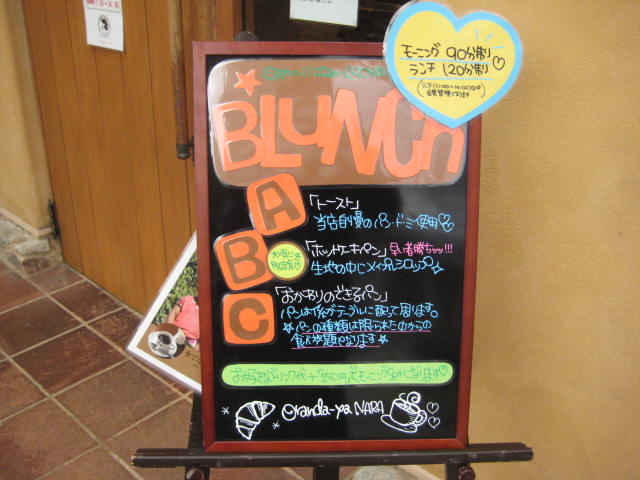 モーニング 90分制
ランチ 120分制♡
BLUNCH
A
「トースト」
当店自慢のパン・ド・ミ使用♡
B
「ホットエキパン」早い者勝ちッッ!!!
生地の中にメイプルシロップ☆
C
「おかわりのできるパン」
パンは係がテーブルに配って周ります。
☆パンの種類は限られた中からの
食べ放題になります☆
お好きなドリンク代+350円でモーニングsetになります♡
Oranda-ya NARA